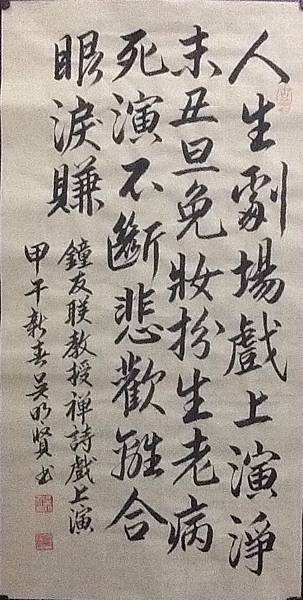 人生劇場戲上演淨
末丑旦免妝扮生老病
死演不斷悲歡離合
眼淚賺
鐘友聯教授禅詩戲上演
甲午新春吳明賢書